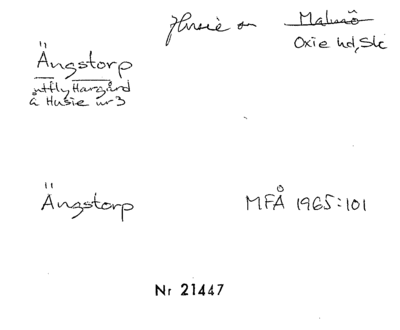 Husie sn Malmö
Oxie hd, Sk
Ängstorp
utfly
å Husie nr 3
Ängstorp MFÅ 1965:101
Nr 21447